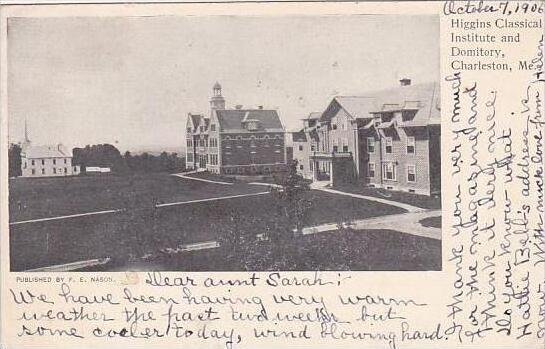 October 7, 1906
Higgins Classical
Institute and
Domitory,
Charleston, Me.
PUBLISHED BY F. E. NASON.
Dear aunt Sarah:-
We have been having very warm
weather the past two weeks but
some cooler today, wind blowing hard.
I thank you very much
for the magazine and
think it very nice.
Do you know what
Hattie Bell's address is
now. With much love from Helen